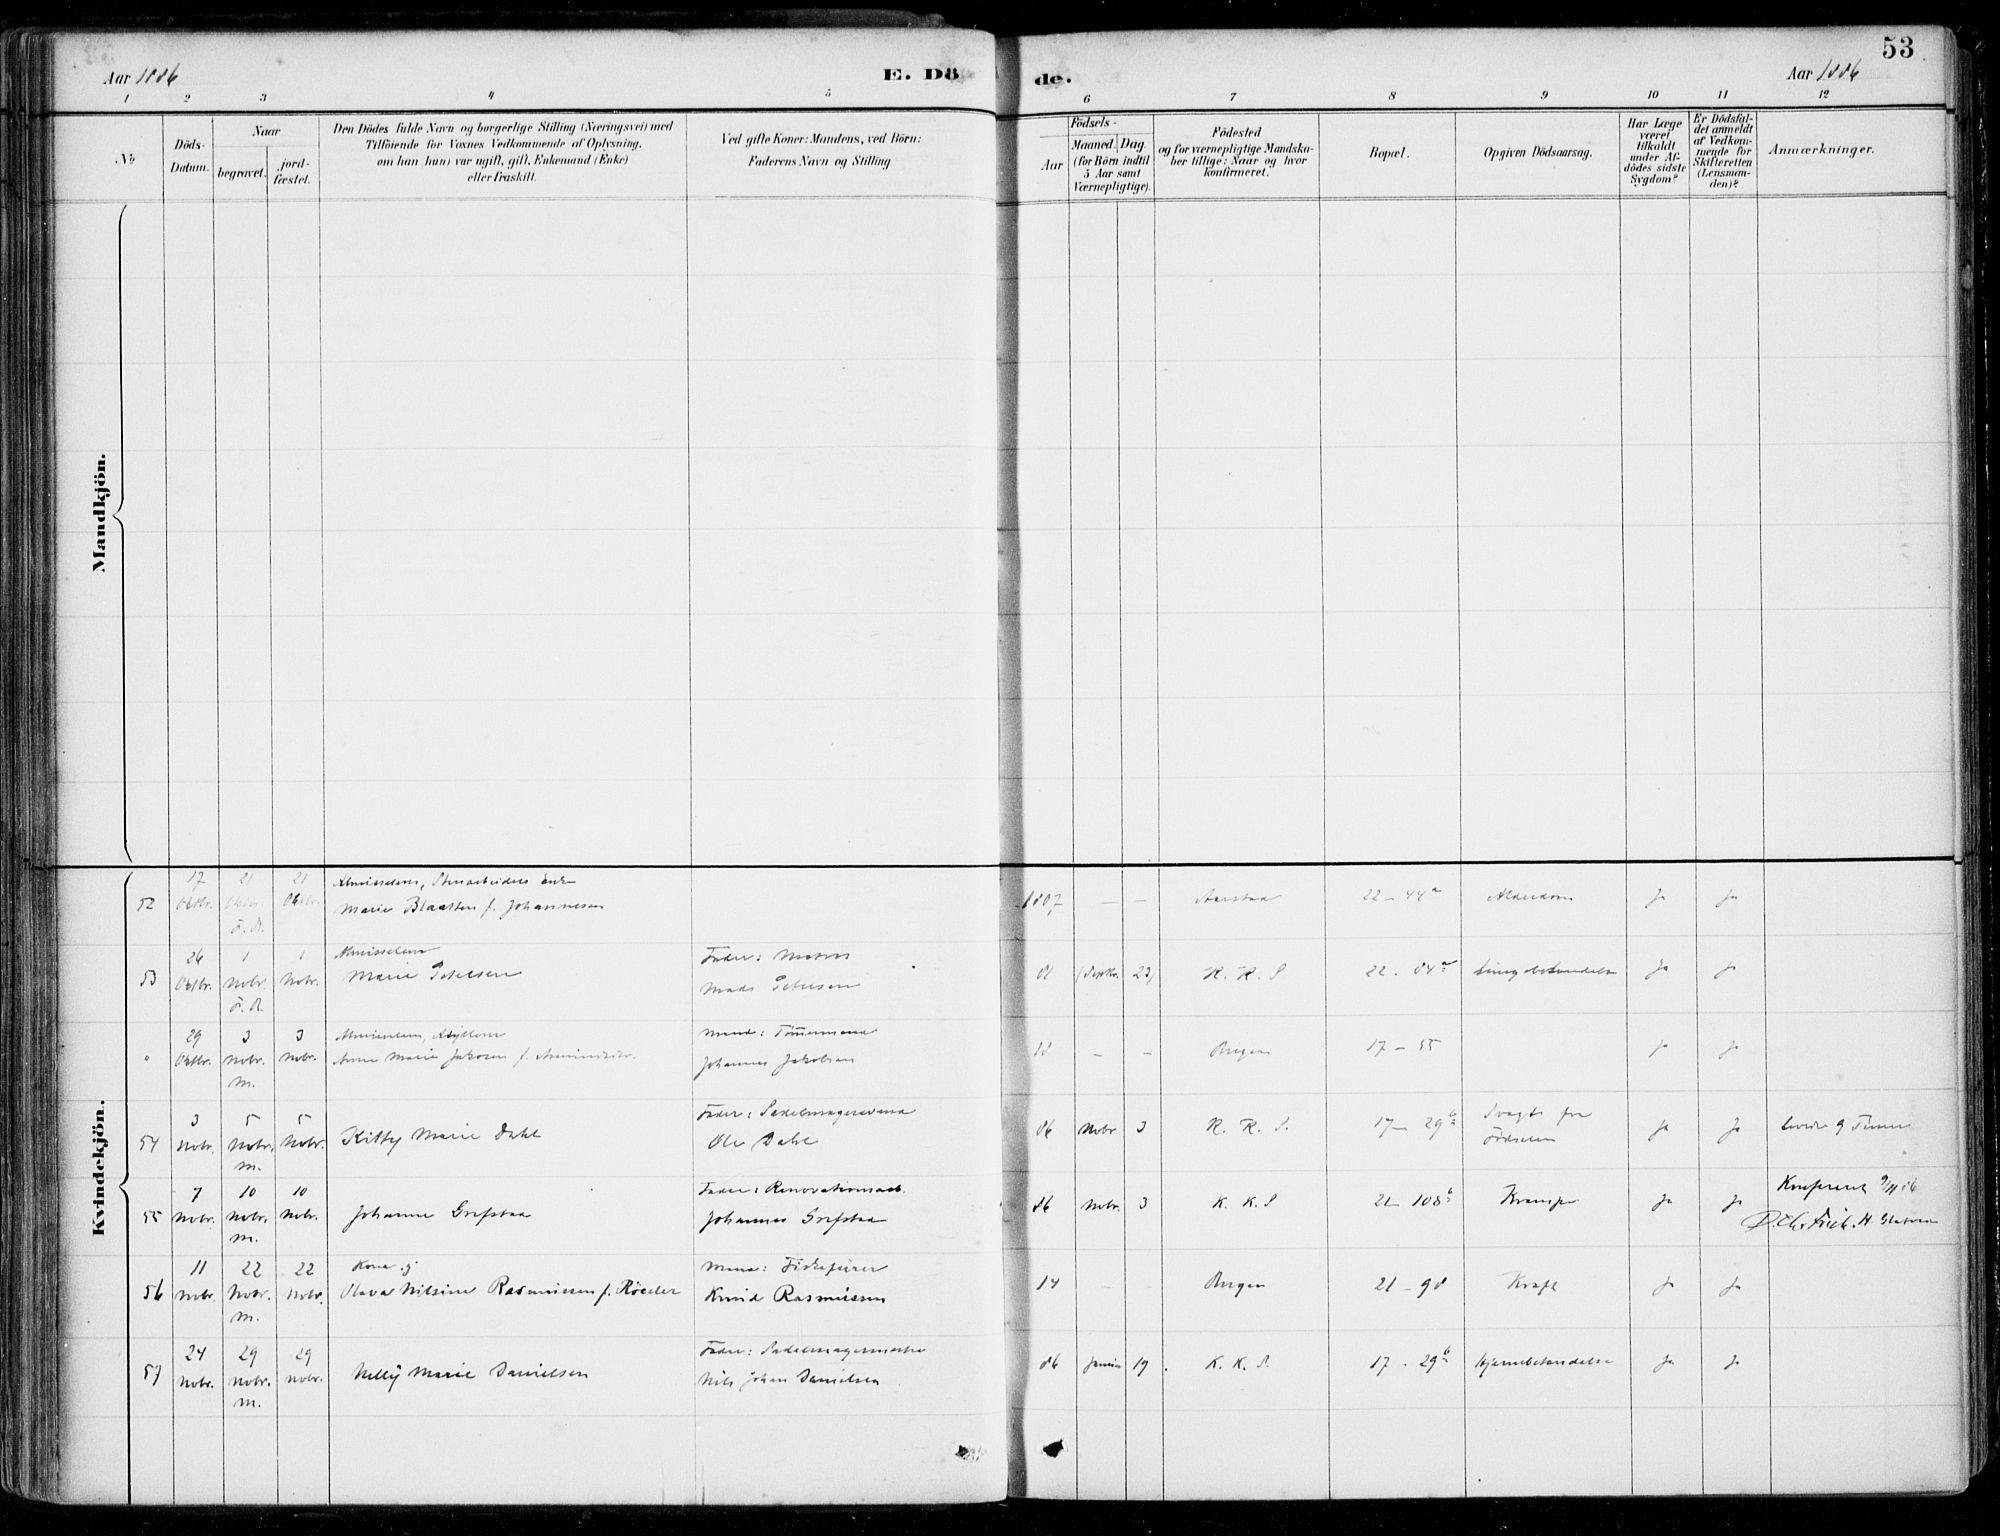 Aar 1886
E. Dö
de.
Aar 1886
53
1 2 3 4 5 6 7 8 9 10 11 12
No
Döds-
Datum.
Naar
begravet.
jord-
fæstet.
Den Dödes fulde Navn og borgerlige Stilling (Næringsvei) med
Tilföiende for Voxnes Vedkommende af Oplysning,
om han (hun) var ugift, gift, Enkemand (Enke)
eller fraskilt.
Ved gifte Koner: Mandens, ved Börn:
Faderens Navn og Stilling
Födsels-
Aar
Maaned.
Dag.
(for Börn indtil
5 Aar samt
Værnepligtige).
Födested
og for værnepligtige Mandska-
ber tillige: Naar og hvor
konfirmeret.
Bopæl.
Opgiven Dödsaarsag.
Har Læge
været
tilkaldt
under Af-
dödes sidste
Sygdom?
Er Dödsfal-
det anmeldt
af Vedkom-
mende for
Skifteretten
(Lensman-
den)?
Anmærkninger.
Mandkjön.
Kvindekjön.
17 21 21
52 Oktbr. Oktbr. Oktbr. Marie f. Johannesen 1807 — — Aarstad 22 - 44a Alderdom Ja Ja
26 1 1 Fader: Matros
53 Oktbr. Novbr. Novbr. Marie Petersen Mads Petersen 81 (Septbr. 23) K. K. S 22 - 84a Lungebetændelse Ja Ja
29 3 3 Mand: Tømmermand
" Oktbr. Novbr. Novbr. Anne Marie f. Johannes Jakobsen 18 - - Bergen 17 - 55 Ja Ja
M.
3 5 5 Fader: Sadelmagersvend
54 Novbr. Novbr. Novbr. Kitty Marie Dahl Ole Dahl 86 Novbr 3 K. K. S. 17 - 29b Svaghed fra Fødselen Ja Ja levede 9 Timer
M.
7 10 10 Fader: Renovationsarb.
55 Novbr. Novbr. Novbr. Johanne Grefstad Johannes Grefstad 86 Novbr. 3 K. K. S 21 - 108b Krampe Ja Ja
M.
11 22 22 Kone Mand:
56 Novbr. Novbr. Novbr. Nilsine Rasmussen f. Knud Rasmussen 14 - - Bergen 21 - 98 Kræft Ja Ja
M.
24 29 29 Fader: Sadelmagermester
57 Novbr. Novbr. Novbr. Nelly Marie Danielsen Nils Johan Danielsen 86 Januar 19 K. K. S. 17 - 29b Hjernebetændelse Ja Ja
M.